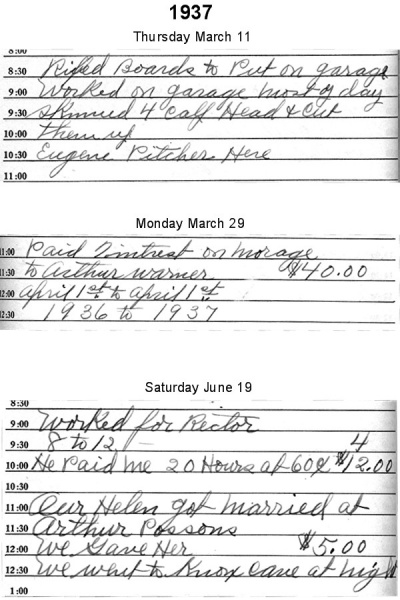 1937
Thursday March 11
8:00
8:30 Rifed Boards to Put on garage
9:00 Worked on garage most of day
9:30 Skinned 4 Calf Head & Cut
10:00 them up
10:30 Eugene Pitcher Here
11:00
Monday March 29
11:00 Paid Intrest on morage
11:30 to Arthur Warner $40.00
12:00 april 1st to april 1st
12:30 1936 to 1937
Saturday June 19
8:30
9:00 Worked for Rector
9:30 8 to 12 – 4
10:00 He Paid me 20 Hours at 60¢ $12.00
10:30
11:00 Our Helen got married at
11:30 Arthur Possons
12:00 We Gave Her $5.00
12:30 we went to Knox cave at night
1:00